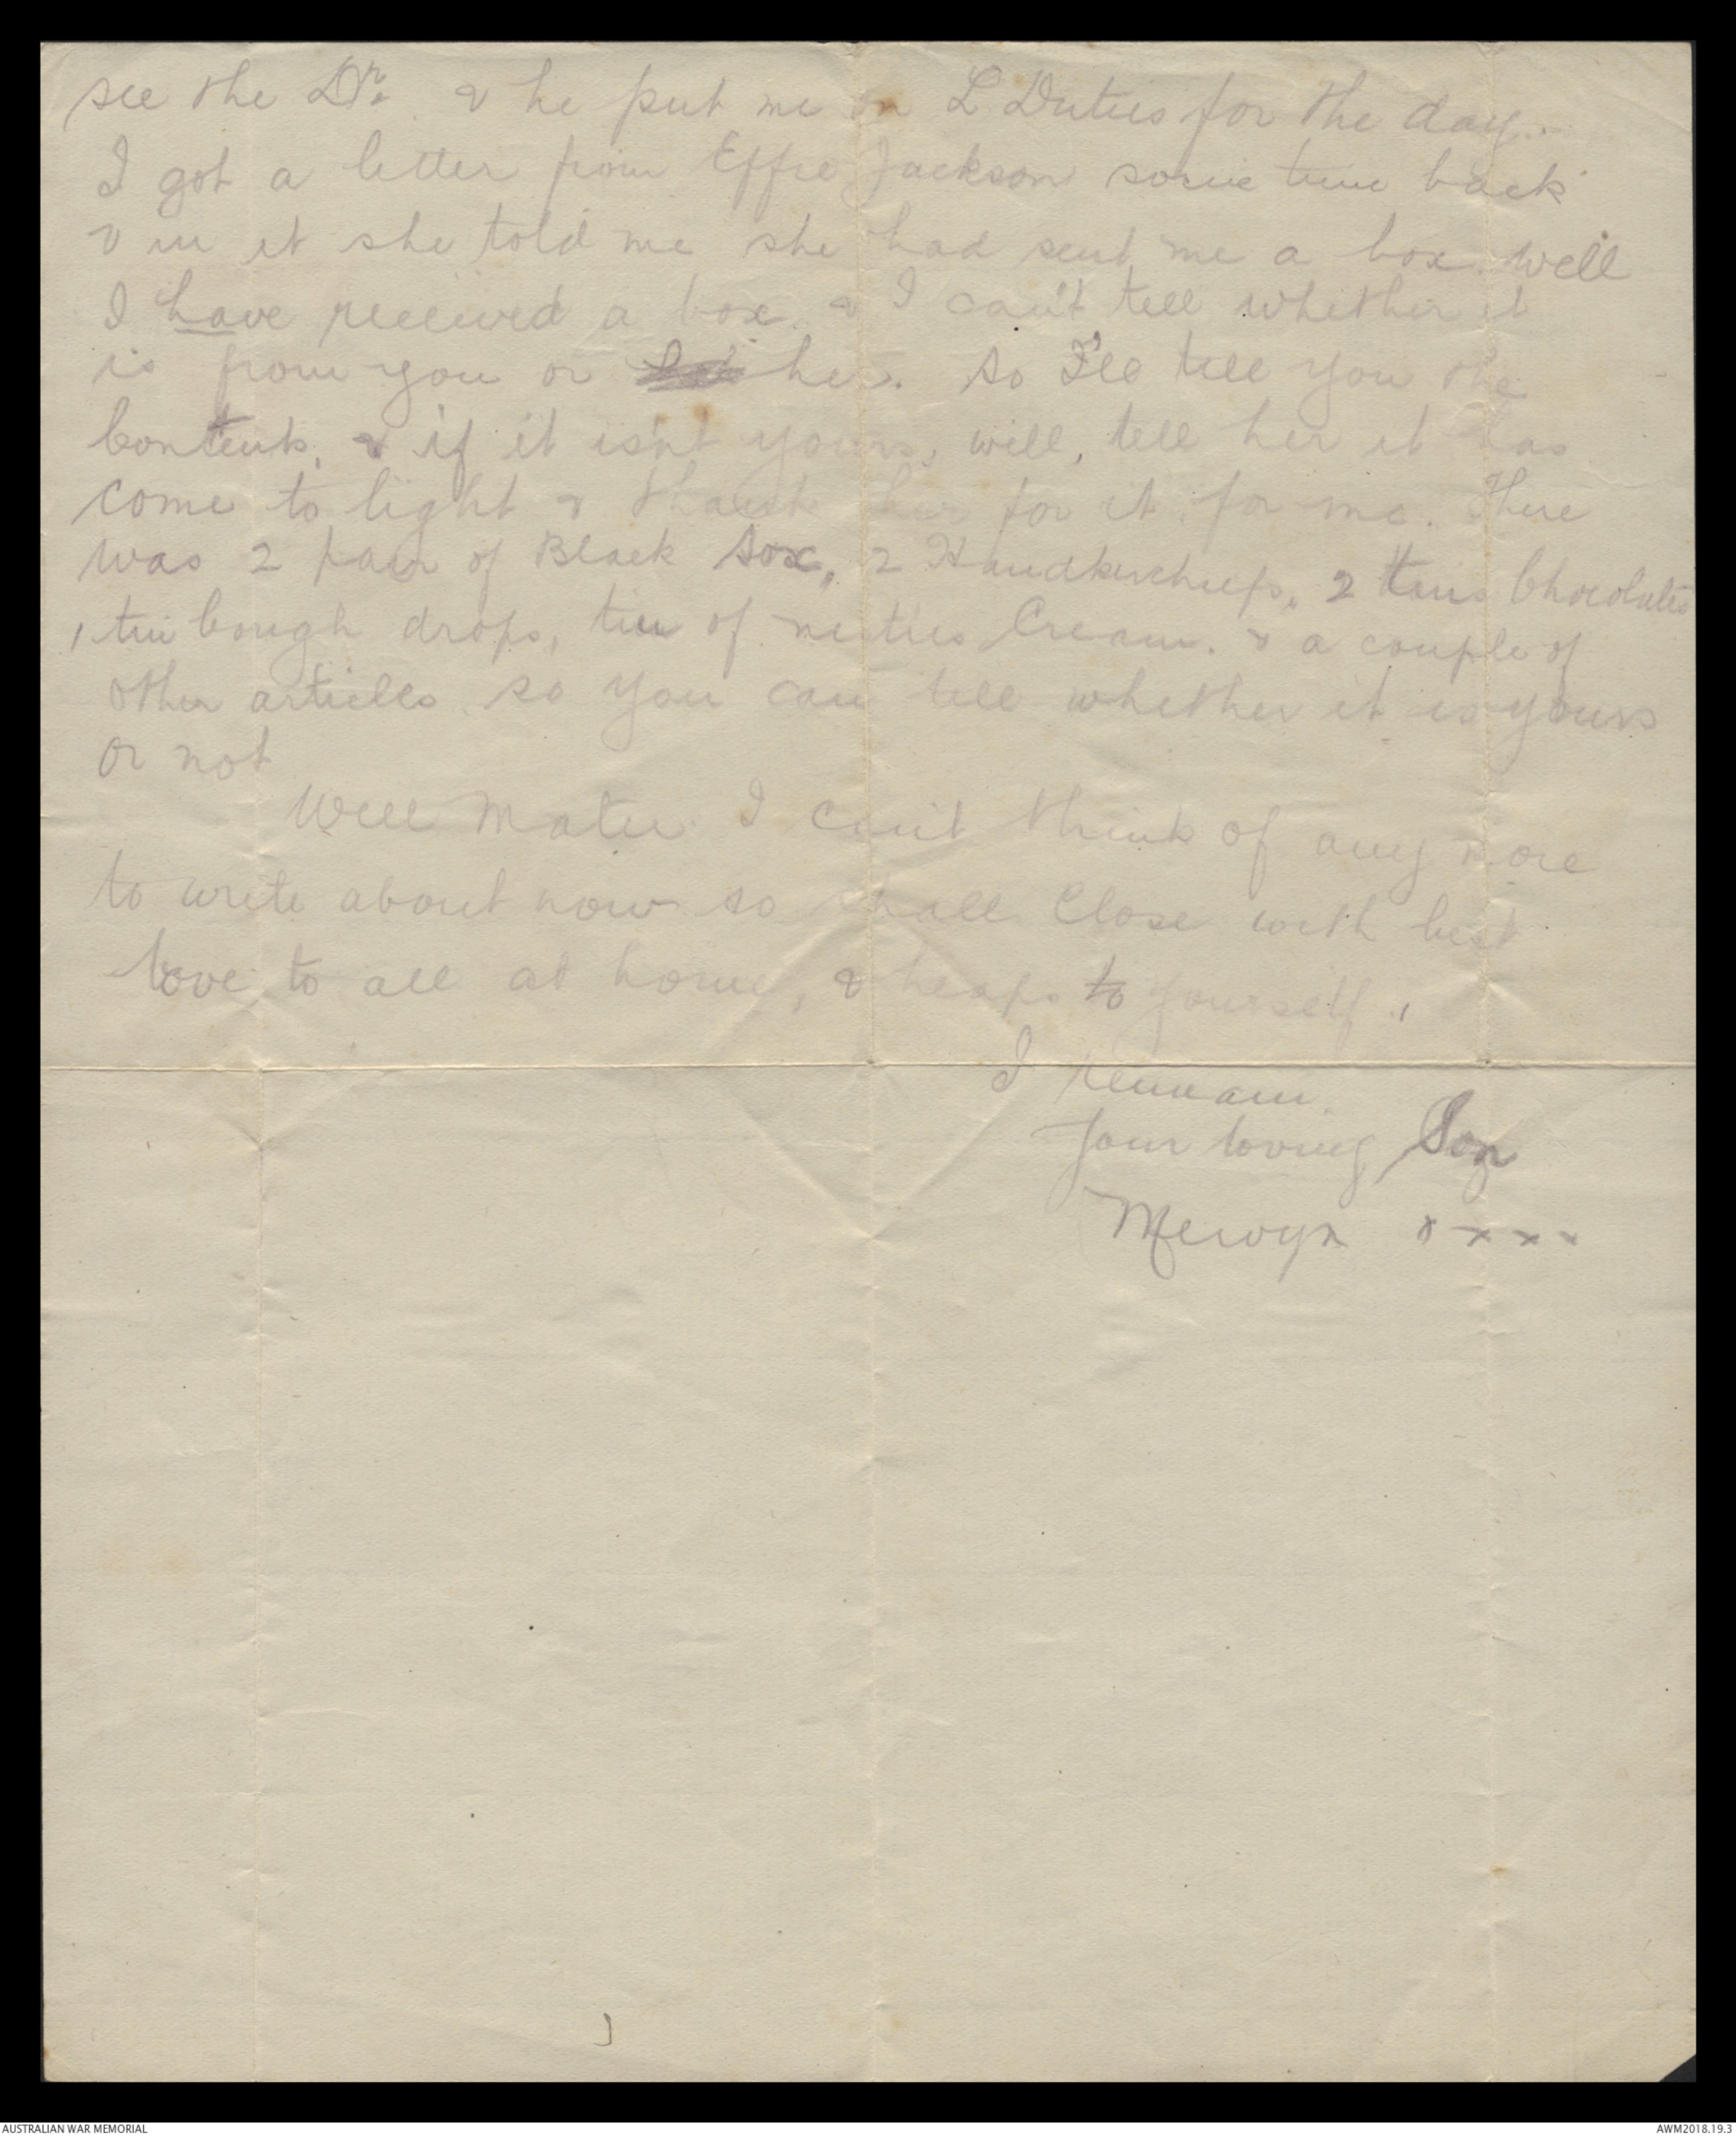 see the Dr. & he put me on L Duties for the day.
I got a letter from Effie Jackson some time back
& in it she told me she had sent me a box. Well
I have received a box. & I can't tell whether it
is from you or her. So I'll tell you the
Contents, & if it isn't yours, will, tell her it has
come to light & thank her for it, for me. There
was 2 pair of Black Sox, 2 Handkerchiefs, 2 tins Chocolates
1 tin Cough drops, tin of nestles Cream. & a couple of
other articles so you can tell whether it is yours
or not
Well Mater I can't think of any more
to write about now so shall Close with best
love to all at home, & heaps to yourself,
I remain.
Your loving Son
Mervyn xxxx
AUSTRALIAN WAR MEMORIAL
AWM2018.19.3